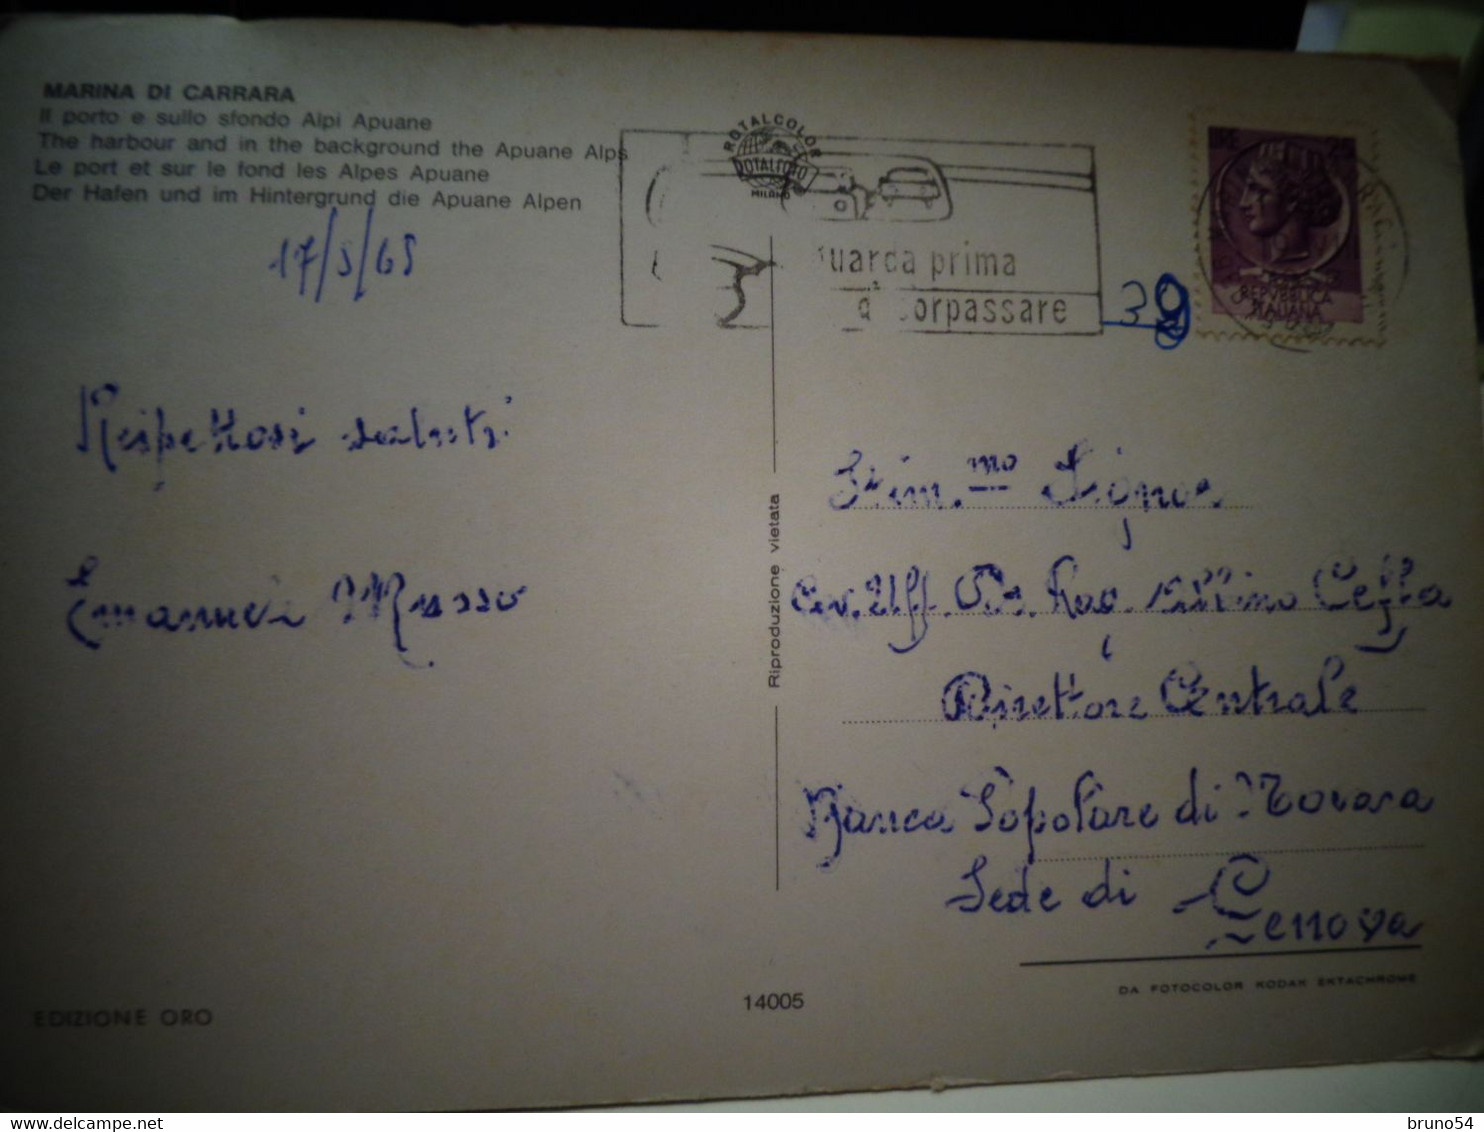 MARINA DI CARRARA
Il porto e sullo sfondo Alpi Apuane
The harbour and in the background the Apuane Alps
Le port et sur le fond les Alpes Apuane
Der Hafen und im Hintergrund die Apuane Alpen
17/5/65
ROTALCOLOR
ROTALFOTO
MILANO
uarda prima
orpassare
39
LIRE 25
REPUBBLICA
ITALIANA
Rispettosi saluti
Emanuele Musso
Riproduzione vietata
Stim.mo Signor
Cav. Uff. Dr. Rag. Albino Ceffa
Direttore Centrale
Banca Popolare di Novara
Sede di Genova
EDIZIONE ORO
14005
DA FOTOCOLOR KODAK EKTACHROME
bruno54